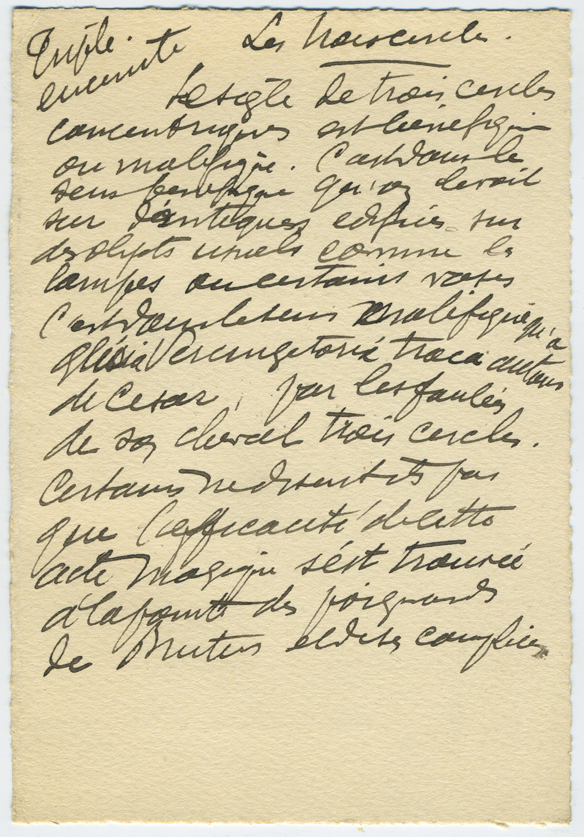 Triple.
enceinte
Les trois cercles.
Le sigle de trois cercles
concentriques est bénéfique
ou maléfique. C'est dans le
sens bénéfique qu'on le voit
sur d'antiques edifices sur
des objets usuels comme les
lampes ou certains vases
C'est dans le sens maléfique qu'à
Vercingetorix traca autour
de Cesar, par les foulées
de son cheval trois cercles.
Certains ne disent ils pas
que l'efficacité de cette
acte magique s'est trouvée
à la pointe des poignards
de Brutus et de ses complices